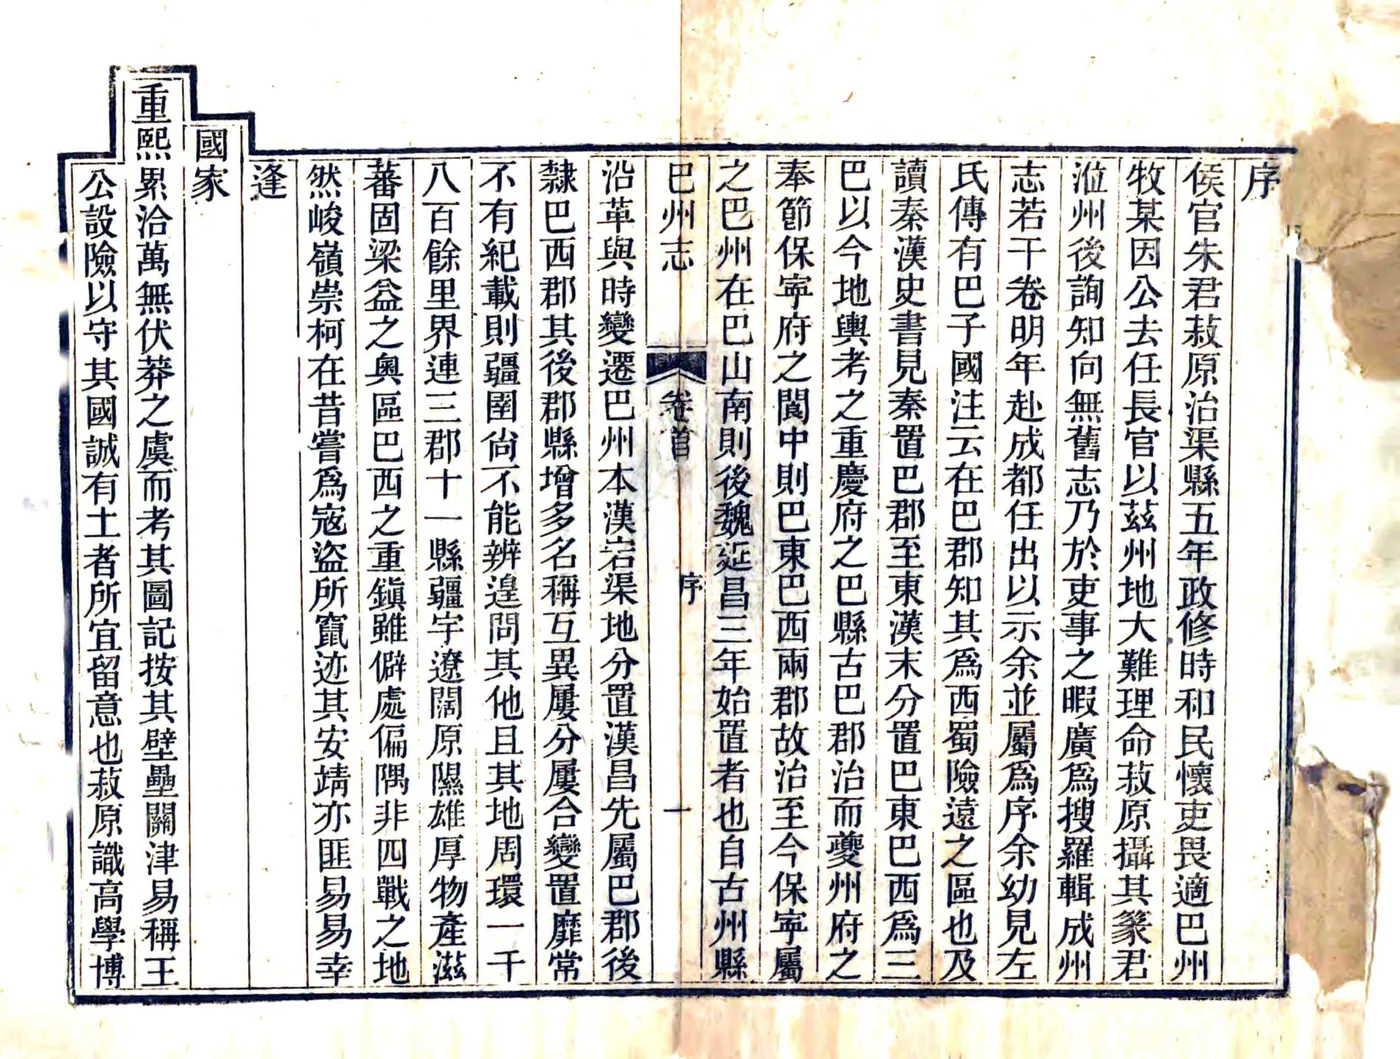 序
侯官朱君菽原治渠縣五年政修時和民懷吏畏適巴州
牧某因公去任長官以茲州地大難理命菽原攝其篆君
涖州後詢知向無舊志乃於吏事之暇廣為搜羅輯成州
志若干卷明年赴成都任出以示余並屬為序余幼見左
氏傳有巴子國注云在巴郡知其為西蜀險遠之區也及
讀秦漢史書見秦置巴郡至東漢末分置巴東巴西為三
巴以今地輿考之重慶府之巴縣古巴郡治而夔州府之
奉節保寧府之閬中則巴東巴西兩郡故治至今保寧屬
之巴州在巴山南則後魏延昌三年始置者也自古州縣
巴州志 卷首 序 一
沿革與時變遷巴州本漢宕渠地分置漢昌先屬巴郡後
隸巴西郡其後郡縣增多名稱互異屢分屢合變置靡常
不有紀載則疆圉尙不能辨遑問其他且其地周環一千
八百餘里界連三郡十一縣疆宇遼闊原隰雄厚物產滋
蕃固梁益之奧區巴西之重鎮雖僻處偏隅非四戰之地
然峻嶺崇柯在昔嘗為寇盜所竄迹其安靖亦匪易易幸
逢
國家
重熙累洽萬無伏莽之虞而考其圖記按其壁壘關津易稱王
公設險以守其國誠有土者所宜留意也菽原識高學博